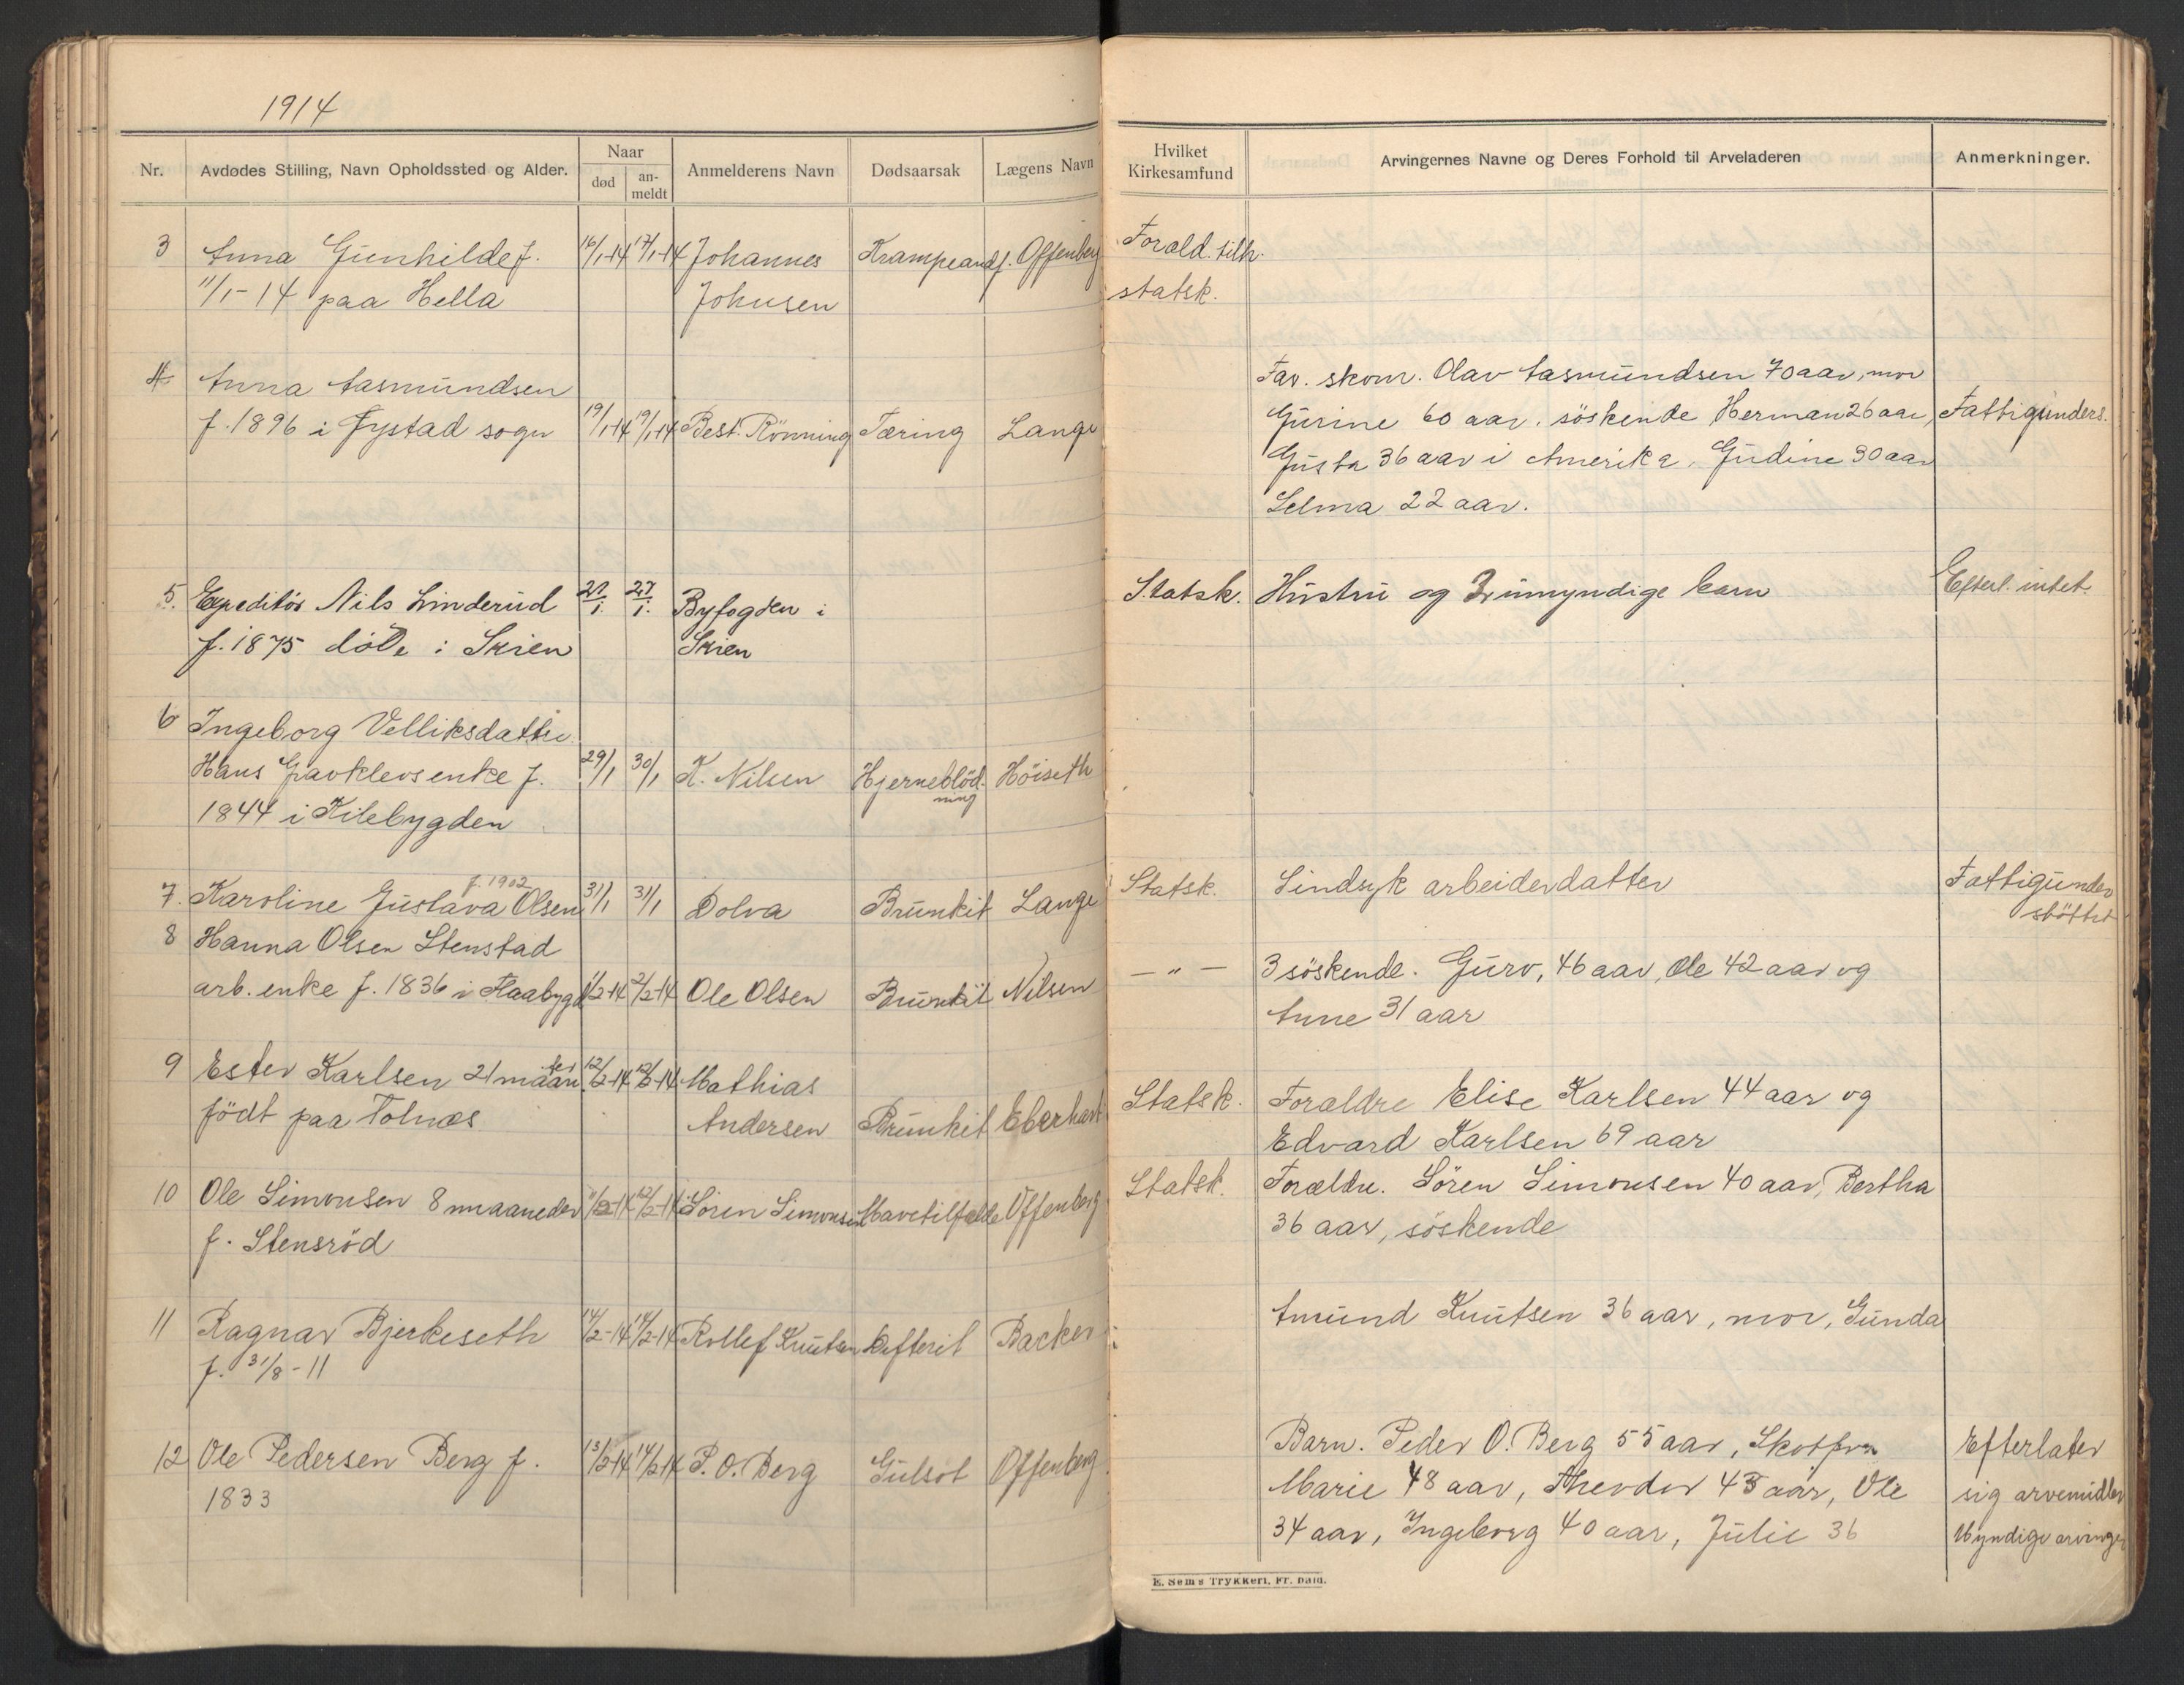 1914
Nr. Avdødes Stilling, Navn Opholdssted og Alder. Naar død an-meldt Anmelderens Navn Dødsaarsak Lægens Navn
3 Anna Gunhilde f. 16/1-14 17/1-14 Johannes Krampeanf. Offenberg
11/1-14 paa Hella Johnsen
4 Anna Aasmundsen
f. 1896 i sogn 19/1-14 19/1-14 Best. Rönning Tæring Lange
5. Expeditör Nils Linderud 21/1. 27/1. Byfogden i
f. 1875 döde i Skien Skien
6 Ingeborg Velliksdatter
Hans Gravklevs enke f. 29/1 30/1 K. Nilsen Hjerneblöd-ning Höiseth
1844 i Kilebygden
f. 1902
7. Karoline Gustava Olsen 31/1 31/1 Dolva Brunkit Lange
8 Hanna Olsen Stenstad
arb. enke f. 1836 i Flaabygd 1/2-14 2/2-14 Ole Olsen Brunkit Nilsen
9 Ester Karlsen 21 maaneder 12/2-14 12/2-14 Mathias
födt paa Tolnæs Andersen Brunkit Eberhart
10 Ole Simonsen 8 maaneder 11/2-14 12/2-14 Sören Simonsen Mavetilfælde Offenberg
f. Stensröd
11 Ragnar Bjerkeseth 14/2-14 14/2-14 Rollef Knutsen Defterit Backer
f. 31/8-11
12 Ole Pedersen Berg f. 13/2-14 14/2-14 P. O. Berg Gulsot Offenberg
1833
Hvilket Kirkesamfund Arvingernes Navne og Deres Forhold til Arveladeren Anmerkninger.
Foræld. tilh.
statsk.
Far. skom. Olav Aasmundsen 70 aar, mor
Gurine 60 aar. söskende Herman 26 aar, Fattigunders.
Gusta 36 aar i Amerika, Gudine 30 aar
Selma 22 aar.
Statsk. Hustru og 3 umyndige barn Efterl. intet.
Statsk. Sindsyk arbeiderdatter Fattigunder
stöttet
- " - 3 söskende. Guro, 46 aar, Ole 42 aar og
Anne 31 aar
Statsk. Forældre Elise Karlsen 44 aar og
Edvard Karlsen 69 aar
Statsk. Forældre. Sören Simonsen 40 aar, Bertha
36 aar, söskende
Amund Knutsen 36 aar, mor, Gunda
Barn. Peder O. Berg 55 aar, Skotfos Efterlater
Marie 48 aar, Theodor 43 aar, Ole sig arvemidler
34 aar, Ingeborg 40 aar, Julie 36 Myndige arvinger
E. Sem's Trykkeri, Fr. hald.